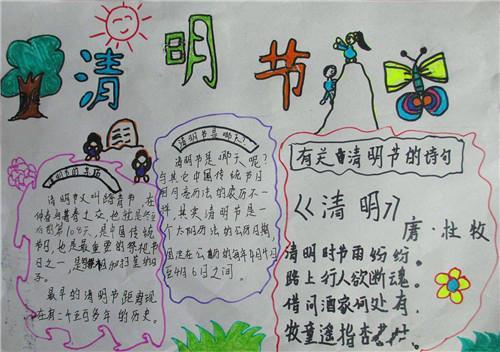 清明节
明节的来历
清明节又叫踏青节，在
仲春与暮春之交，也就是冬至
后的第108天，是中国传统
节日，也是最重要的祭祀节
日之一，是祭祖和扫墓的日
子。
最早的清明节距离现
在有二千五百多年的历史。
清明节是哪天?
清明节是哪天呢？
与其它中国传统节日
用月亮历法的农历不一
样，其实清明节是一
个太阳历法的公历日期，
固定在公历的每年4月4日
至4月6日之间。
有关清明节的诗句
《清明》
唐·牲牧
清明时节雨纷纷。
路上行人欲断魂。
借问酒家何处有.
牧童遥指杏